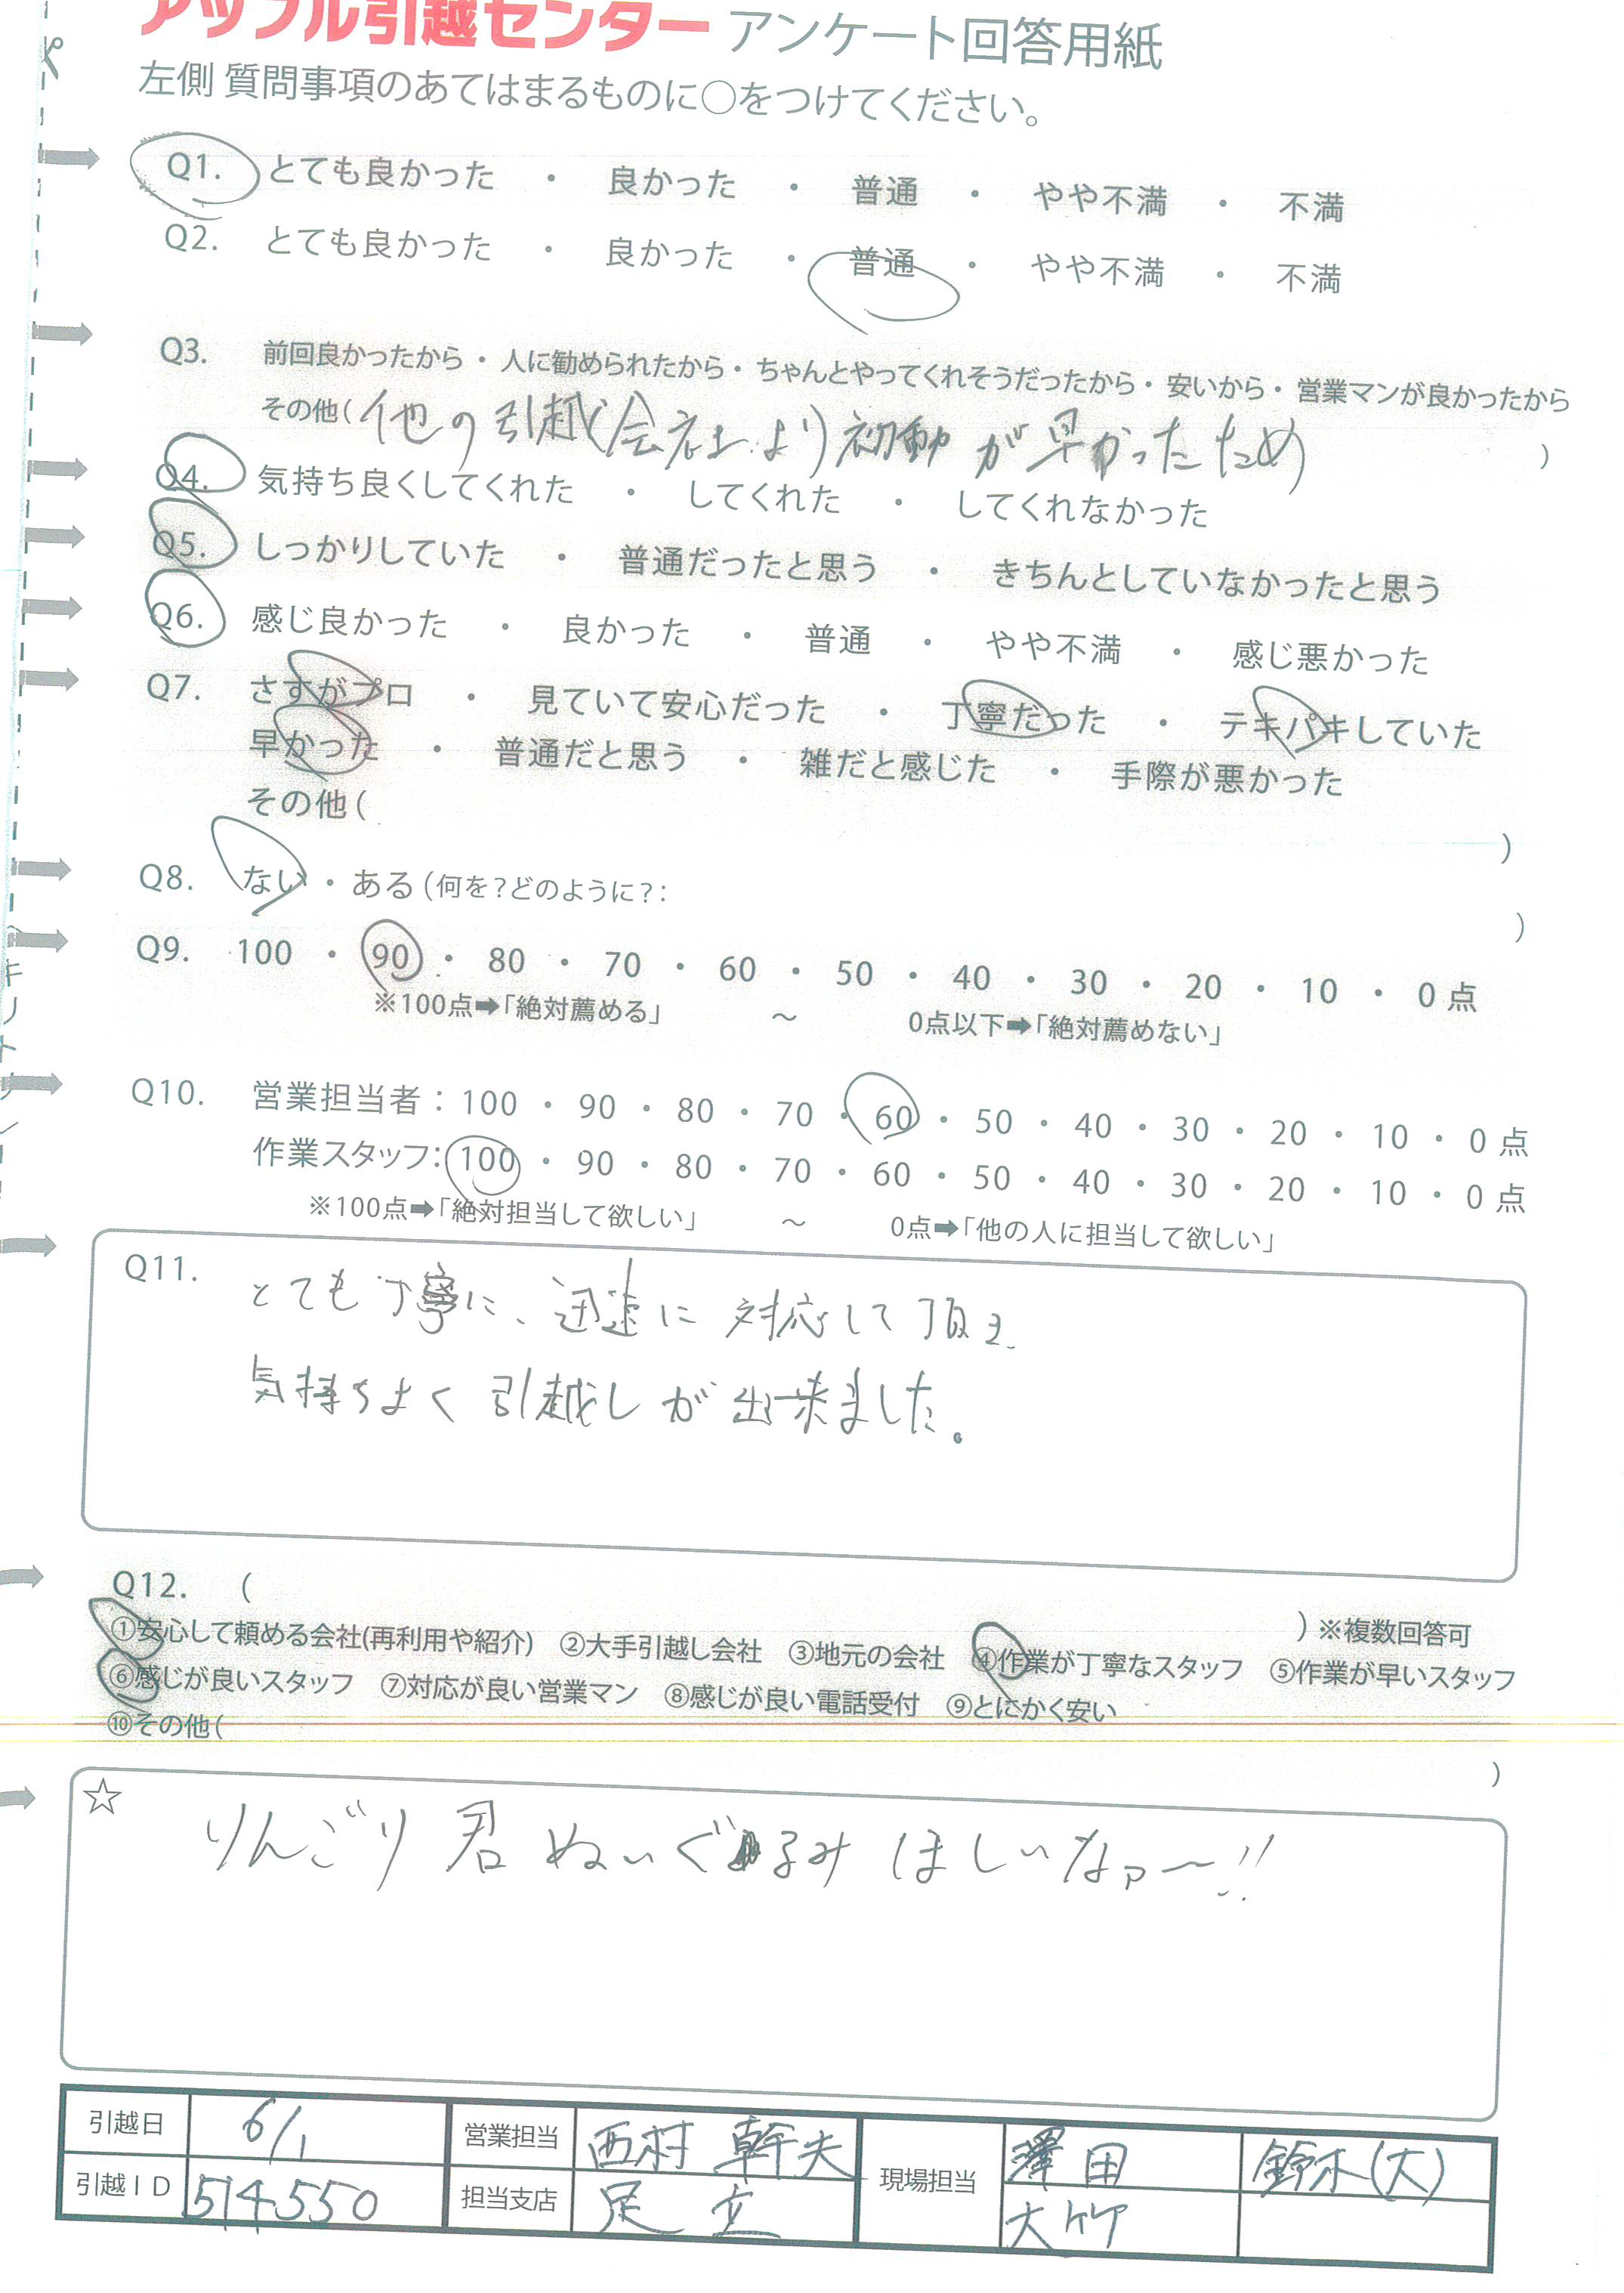 アップル引越センター アンケート回答用紙
左側 質問事項のあてはまるものに○をつけてください。
Q1. とても良かった ・ 良かった ・ 普通 ・ やや不満 ・ 不満
Q2. とても良かった ・ 良かった ・ 普通 ・ やや不満 ・ 不満
Q3. 前回良かったから・人に勧められたから・ちゃんとやってくれそうだったから・安いから・営業マンが良かったから
その他(他の引越会社より初動が早かったため)
Q4. 気持ち良くしてくれた ・ してくれた ・ してくれなかった
Q5. しっかりしていた ・ 普通だったと思う ・ きちんとしていなかったと思う
Q6. 感じ良かった ・ 良かった ・ 普通 ・ やや不満 ・ 感じ悪かった
Q7. さすがプロ ・ 見ていて安心だった ・ 丁寧だった ・ テキパキしていた
早かった ・ 普通だと思う ・ 雑だと感じた ・ 手際が悪かった
その他( )
Q8. ない ・ ある(何を?どのように?: )
Q9. 100 ・ 90 ・ 80 ・ 70 ・ 60 ・ 50 ・ 40 ・ 30 ・ 20 ・ 10 ・ 0点
※100点➡「絶対薦める」 ～ 0点以下➡「絶対薦めない」
Q10. 営業担当者:100 ・ 90 ・ 80 ・ 70 ・ 60 ・ 50 ・ 40 ・ 30 ・ 20 ・ 10 ・ 0点
作業スタッフ:100 ・ 90 ・ 80 ・ 70 ・ 60 ・ 50 ・ 40 ・ 30 ・ 20 ・ 10 ・ 0点
※100点➡「絶対担当して欲しい」 ～ 0点➡「他の人に担当して欲しい」
Q11. とても丁寧に、迅速に対応して頂き、
気持ちよく引越しが出来ました。
Q12. ( ) ※複数回答可
①安心して頼める会社(再利用や紹介) ②大手引越し会社 ③地元の会社 ④作業が丁寧なスタッフ ⑤作業が早いスタッフ
⑥感じが良いスタッフ ⑦対応が良い営業マン ⑧感じが良い電話受付 ⑨とにかく安い
⑩その他( )
☆ りんごり君ぬいぐるみほしいなァ〜!!
引越日 6/1 営業担当 西村 幹夫 現場担当 澤田 鈴木(大)
引越ID 514550 担当支店 足立 大竹
キリトリ